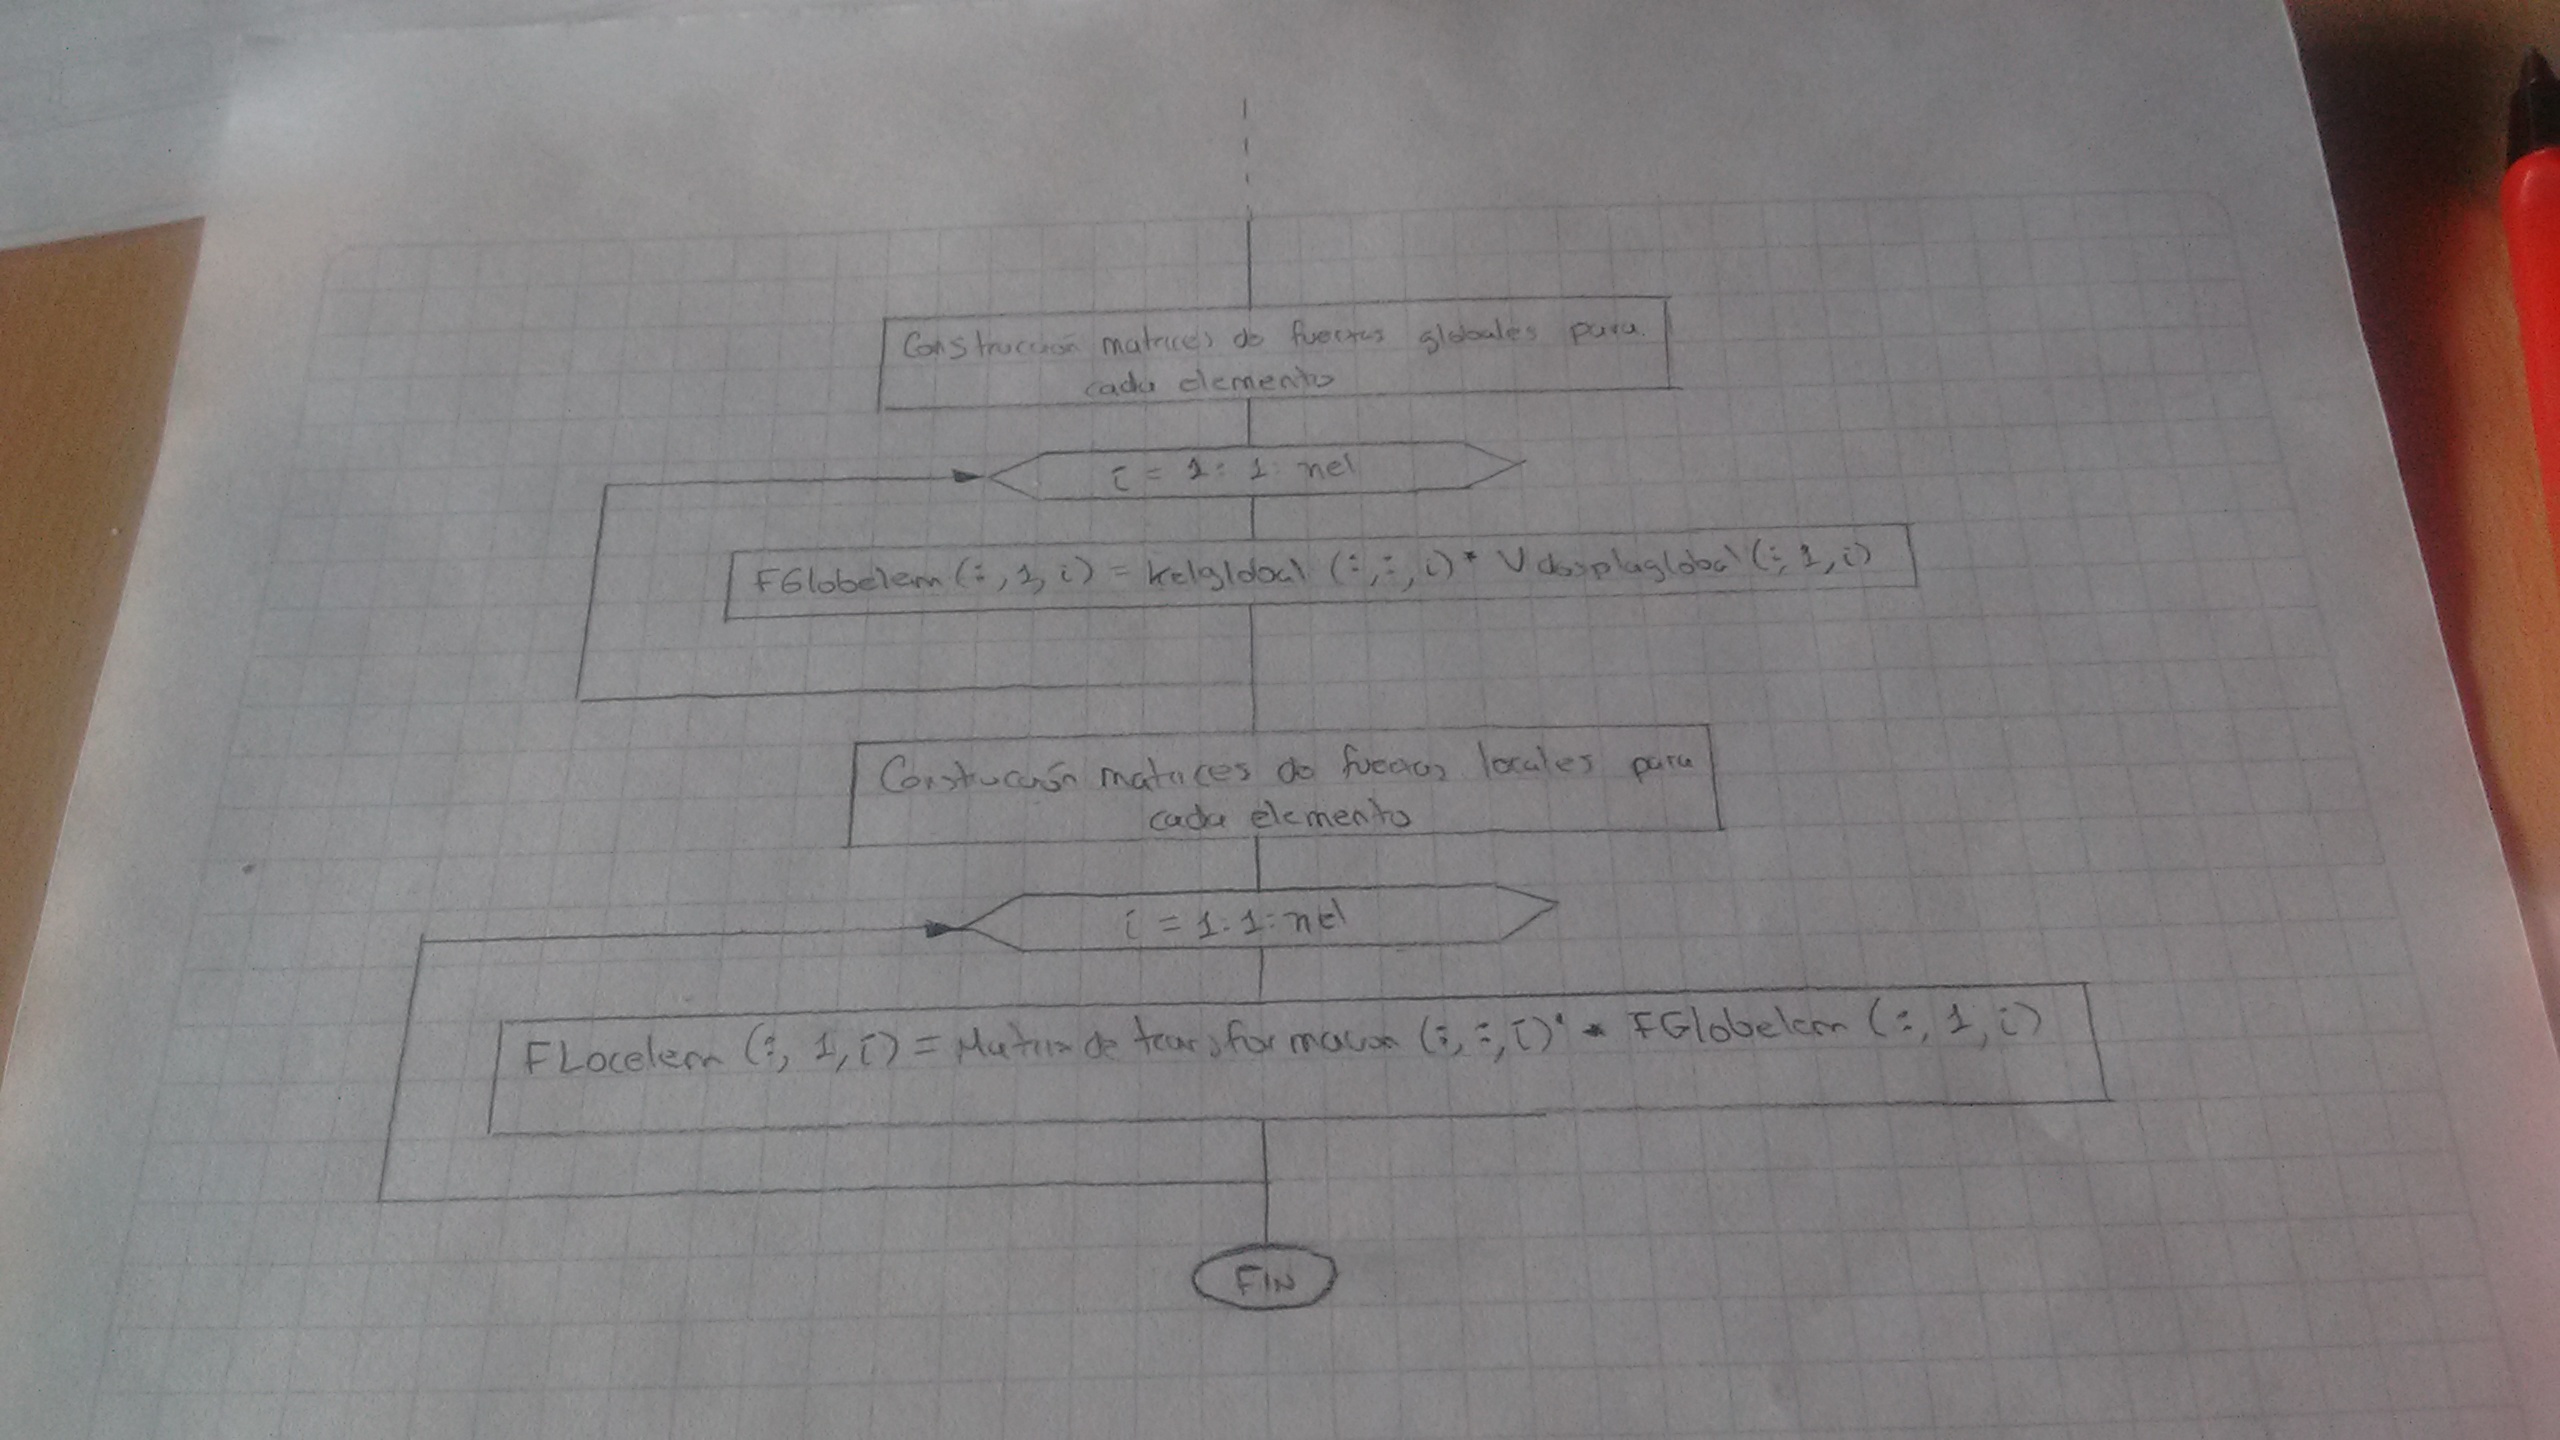 Construcción matrices de fuerzas globales para
cada elemento
i = 1 : 1 : nel
FGlobelem (:, 1, i) = kelglobal (:, :, i) * Vdesplaglobal (:, 1, i)
Construcción matrices de fuerzas locales para
cada elemento
i = 1 : 1 : nel
FLocelem (:, 1, i) = Matriz de transformacion (:, :, i)' * FGlobelem (:, 1, i)
FIN